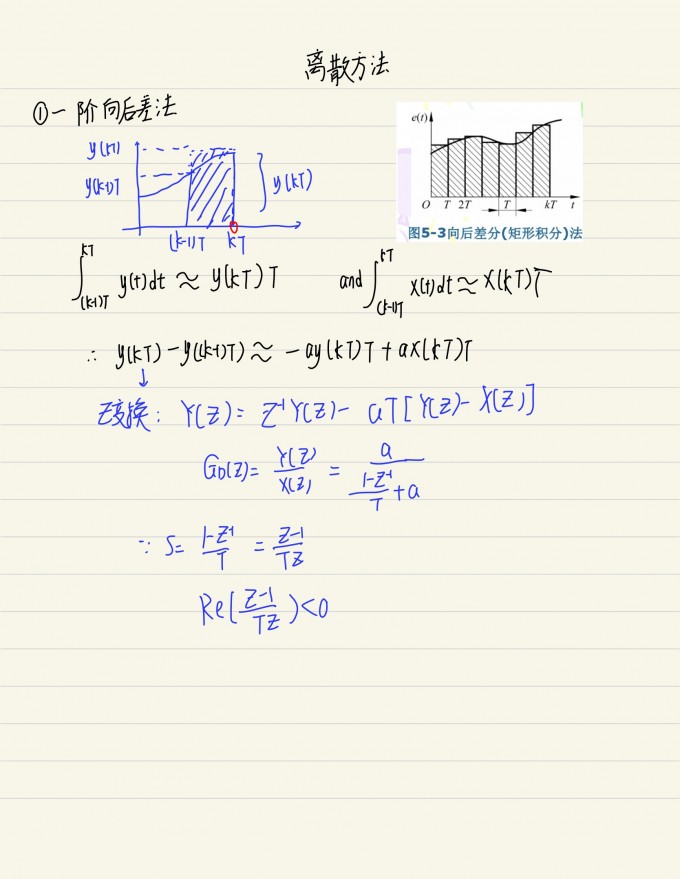 离散方法
①一阶向后差法
y(kT)
y(k-1)T
y(kT)
(k-1)T kT
e(t)
O T 2T T kT t
图5-3向后差分(矩形积分)法
∫_{(k-1)T}^{kT} y(t)dt ≈ y(kT)T and ∫_{(k-1)T}^{kT} x(t)dt ≈ x(kT)T
∴ y(kT)-y((k-1)T) ≈ -ay(kT)T+ax(kT)T
↓
Z变换: Y(Z)= Z^{-1}Y(Z)- aT[Y(Z)-X(Z)]
G_D(Z)= Y(Z)/X(Z) = a/((1-Z^{-1})/T+a)
∵ S= (1-Z^{-1})/T = (Z-1)/(TZ)
Re((Z-1)/(TZ))<0